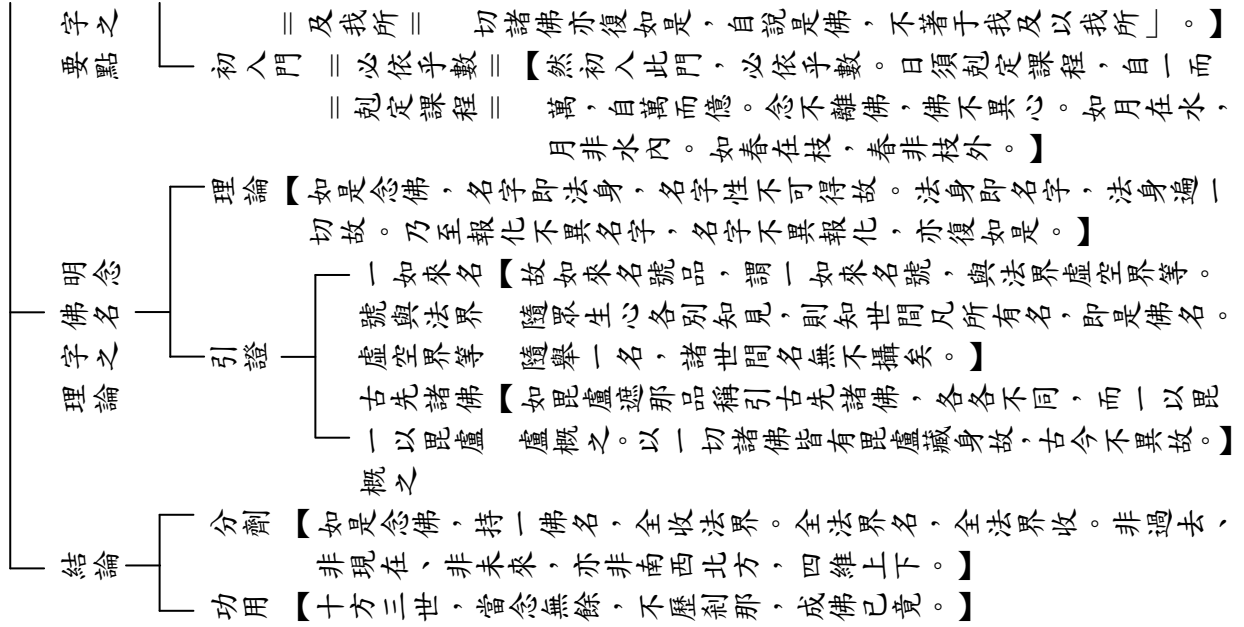 字之 ＝及我所＝ 切諸佛亦復如是，自說是佛，不著于我及以我所」。】
要點 初入門 ＝必依乎數＝【然初入此門，必依乎數。日須剋定課程，自一而
＝剋定課程＝ 萬，自萬而億。念不離佛，佛不異心。如月在水，
月非水內。如春在枝，春非枝外。】
理論【如是念佛，名字即法身，名字性不可得故。法身即名字，法身遍一
切故。乃至報化不異名字，名字不異報化，亦復如是。】
明念
佛名
字之
理論
引證
一如來名【故如來名號品，謂一如來名號，與法界虛空界等。
號與法界 隨眾生心各別知見，則知世間凡所有名，即是佛名。
虛空界等 隨舉一名，諸世間名無不攝矣。】
古先諸佛【如毘盧遮那品稱引古先諸佛，各各不同，而一以毘
一以毘盧 盧概之。以一切諸佛皆有毘盧藏身故，古今不異故。】
概之
結論
分劑【如是念佛，持一佛名，全收法界。全法界名，全法界收。非過去、
非現在、非未來，亦非南西北方，四維上下。】
功用【十方三世，當念無餘，不歷剎那，成佛已竟。】